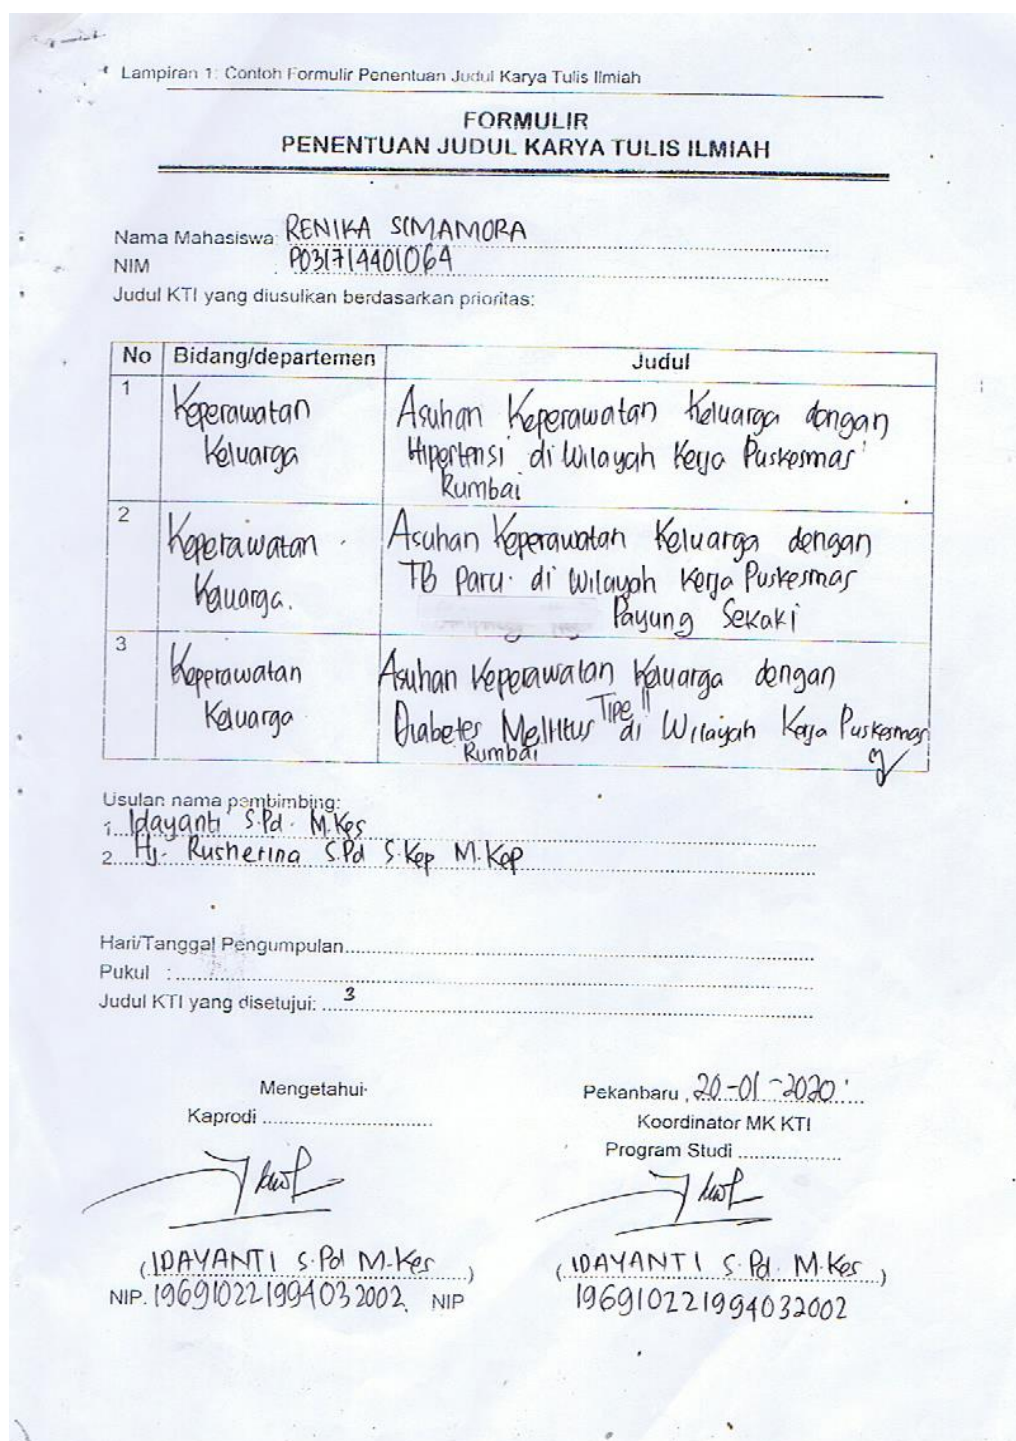 Lampiran 1: Contoh Formulir Penentuan Judul Karya Tulis Ilmiah
FORMULIR
PENENTUAN JUDUL KARYA TULIS ILMIAH
Nama Mahasiswa: RENIKA SIMAMORA
NIM : P031714401064
Judul KTI yang diusulkan berdasarkan prioritas:
No Bidang/departemen Judul
1 Keperawatan Keluarga Asuhan Keperawatan Keluarga dengan
Hipertensi di Wilayah Kerja Puskesmas
Rumbai
2 Keperawatan Keluarga. Asuhan Keperawatan Keluarga dengan
TB Paru di Wilayah Kerja Puskesmas
Payung Sekaki
3 Keperawatan Keluarga Asuhan Keperawatan Keluarga dengan
Diabetes Mellitus Tipe II di Wilayah Kerja Puskesmas
Rumbai
Usulan nama pembimbing:
1. Idayanti S.Pd. M.Kes
2. Hj. Rusherina S.Pd S.Kep M.Kep
Hari/Tanggal Pengumpulan
Pukul :
Judul KTI yang disetujui: 3
Mengetahui
Kaprodi
Pekanbaru, 20-01-2020
Koordinator MK KTI
Program Studi
(IDAYANTI S.Pd M.Kes)
NIP. 196910221994032002
(IDAYANTI S.Pd. M.Kes)
NIP 196910221994032002